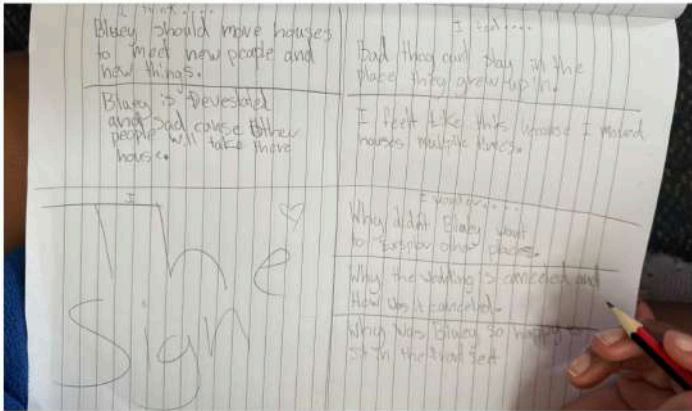 I think.....
Bluey should move houses
to meet new people and
new things.
Bluey is Devestated
and sad cause other
people will take there
house.
I feel....
Bad they can't play in the
place they grew up in.
I feelt like this because I moved
houses multiple times.
I
The
Sign
I wonder.....
Why didn't Bluey want
to explor other places.
Why the wedding is canceled and
How was it canceled.
Why was Bluey so happy
sit in the